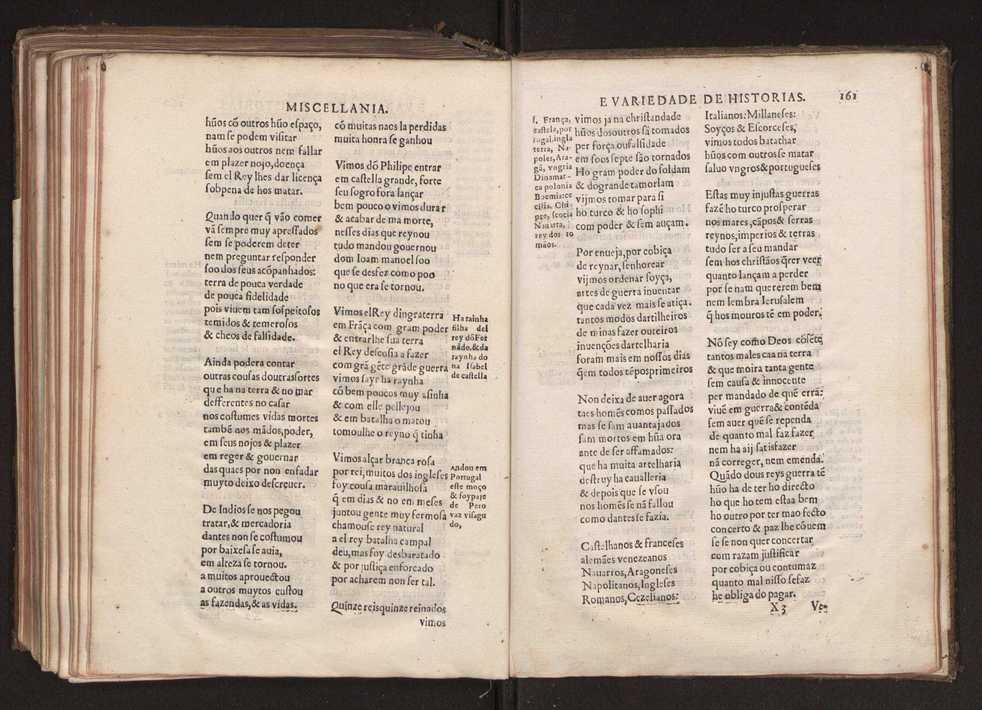 MISCELLANIA.
hũos cõ outros hũo espaço,
nam se podem visitar
hũos aos outros nem fallar
em plazer nojo, doença
sem el Rey lhes dar licença
sobpena de hos matar.
Quando quer q̃ vão comer
vã sempre muy apressados
sem se poderem deter
nem preguntar responder
soo dos seus acõpanhados:
terra de pouca verdade
de pouca fidelidade
pois viuem tam sospeitosos
temidos & temerosos
& cheos de falsidade.
Ainda podera contar
outras cousas doutras sortes
que ha na terra & no mar
defferentes no casar
nos costumes vidas mortes
tambẽ nos mãdos, poder,
em seus nojos & plazer
em reger & gouernar
das quaes por non enfadar
muyto deixo descreuer.
De Indios se nos pegou
tratar, & mercadoria
dantes non se costumou
por baixesa se auia,
em alteza se tornou.
a muitos aprouectou
a outros muytos custou
as fazendas, & as vidas.
cõ muitas naos la perdidas
muita honra se ganhou
Vimos dõ Philipe entrar
em castella grande, forte
seu sogro fora lançar
bem pouco o vimos durar
& acabar de ma morte,
nesses dias que reynou
tudo mandou gouernou
dom Ioam manoel soo
que se desfez como poo
no que era se tornou.
Vimos el Rey dingraterra
em Frãça com gram poder
& entrarlhe sua terra
el Rey descosia a fazer
com grã gẽte grãde guerra
vimos sayr ha raynha
cõ bem poucos muy asinha
& com elle pellejou
& em batalha o matou
tomoulhe o reyno q̃ tinha
Ha rainha
filha del
rey dõ Fer
nãdo, & da
raynha do
na Isabel
de castella
Vimos alçar branca rosa
por rei, muitos dos ingleses
foy cousa marauilhosa
q̃ em dias & no em meses
juntou gente muy fermosa
chamouse rey natural
a el rey batalha campal
deu, mas foy desbaratado
& por justiça enforcado
por acharem non ser tal.
Andou em
Portugal
este moço
& foy paje
de Pero
vaz visagu
do,
Quinze reis quinze reinados
Vimos
E VARIEDADE DE HISTORIAS. 161
s. França,
castela, por
tugal. ingla
terra, Na
poles, Ara-
gã, vngria
Dinamar-
ca polonia
Boemia: es
cecia. Chi
pre, scocia
Nauarra,
rey dos ro
mãos.
vimos ja na christandade
hũos dos outros sã tomados
per força ou falsidade
em soos septe são tornados
Ho gram poder do soldam
& do grande tamorlam
vijmos tomar para si
ho turco & ho sophi
com poder & sem auçam.
Por enueja, por cobiça
de reynar, senhorear
vijmos ordenar soyça,
artes de guerra inuentar
que cada vez mais se atiça.
tantos modos dartilheiros
de minas fazer outeiros
inuenções dartelharia
foram mais em nossos dias
q̃ em todos tẽpos primeiros
Non deixa de auer agora
taes homẽs comos passados
mas se sam auantajados
sam mortos em hũa ora
ante de ser affamados:
que ha muita artelharia
destruy ha caualleria
& depois que se vsou
nos homẽs se nã fallou
como dantes se fazia.
Castelhanos & franceses
alemães venezeanos
Nauarros, Aragoneses
Napolitanos, Ingleses
Romanos, Cezelianos:
Italianos: Millaneses:
Soyços & Escorceses,
vimos todos batalhar
hũos com outros se matar
saluo vngros & portugueses
Estas muy injustas guerras
fazẽ ho turco prosperar
nos mares, cãpos & serras
reynos, imperios & terras
tudo ser a seu mandar
sem hos christãos q̃rer veer
quanto lançam a perder
por se nam quererem bem
nem lembra Ierusalem
q̃ hos mouros tẽ em poder.
Nõ sey como Deos cõsẽte
tantos males caa na terra
& que moira tanta gente
sem causa & innocente
per mandado de quẽ erra:
viuẽ em guerra & contẽda
sem auer quẽ se rependa
de quanto mal faz fazer
nem ha aij satisfazer
nã correger, nem emenda.
Quãdo dous reys guerra tẽ
hũo ha de ter ho directo
ho que ho tem estaa bem
ho outro por ter mao fecto
concerto & paz lhe cõuem
se se non quer concertar
com razam justificar
por cobiça ou contumaz
quanto mal nisso se faz
he obliga do pagar.
X3 Ve-